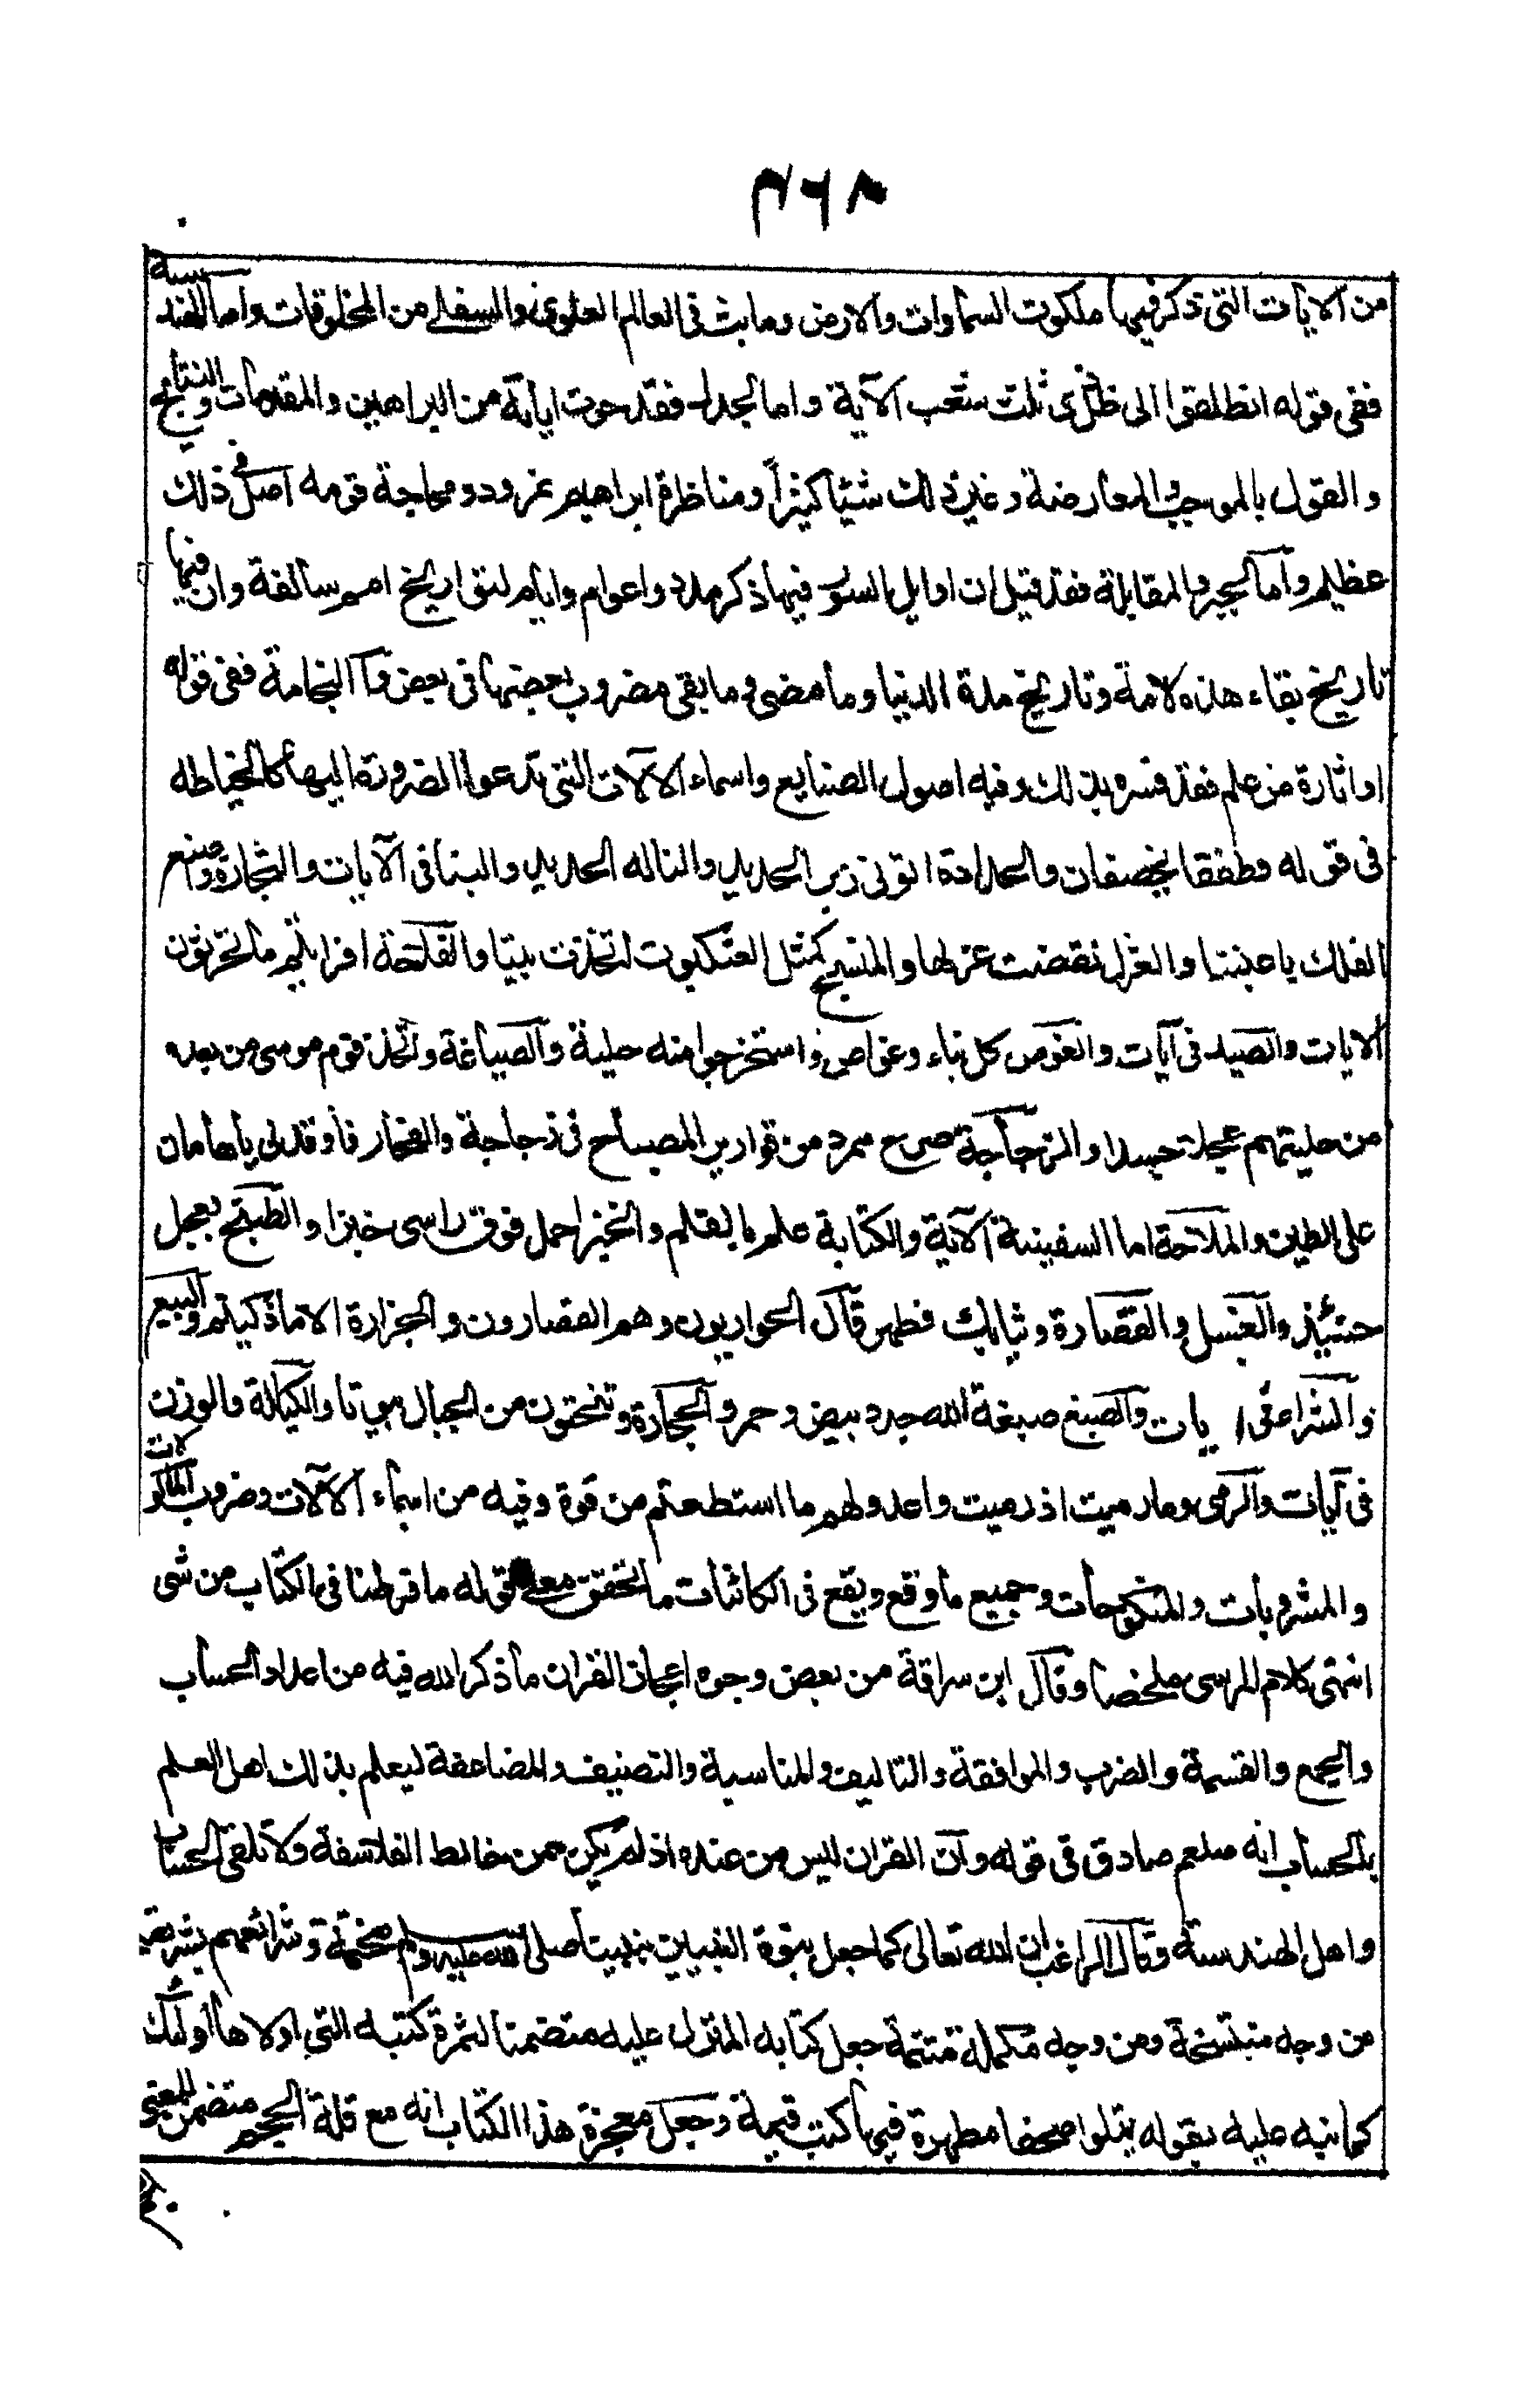 ٣٦٨
من الايات التى ذكر فيها ملكوت السماوات والارض وما بث فى العالم العلوى والسفلى من المخلوقات واما الهندسة
ففى قوله انطلقوا الى ظل ذى ثلث شعب الآية واما الجدل فقد حوت اياته من البراهين والمقدمات والنتائج
والقول بالموجب والمعارضة وغير ذلك شيئا كثيراً ومناظرة ابراهيم نمرود ومحاجة قومه اصل فى ذلك
عظيم وآما الجبر والمقابلة فقد قيل ان اوايل السور فيها ذكر مدد واعوام وايام لتواريخ امم سالفة وان فيها
تاريخ بقاء هذه الامة وتاريخ مدة الدنيا وما مضى وما بقى مضروب بعضها فى بعض وآ النجامة ففى قوله
او اثارة من علم فقد فسره بذلك وفيه اصول الصنايع واسماء الآلات التى تدعوا الضرورة اليها كالخياطه
فى قوله وطفقا يخصفان والحدادة اتونى زبر الحديد والنا له الحديد والبنا فى الآيات والنجارة وصنع
الفلك باعيننا والغزل نقضت غزلها والنسج كمثل العنكبوت اتخذت بيتا والفلاحة افرايتم ما تحرثون
الايات والصيد فى آيات والغوص كل بناء وغواص واستخرجوا منه حلية والصياغة واتخذ قوم موسى من بعده
من حليتهم عجلا جسدا والزجاجة صرح ممرد من قوارير المصباح فى زجاجة والفخار فاوقد لى ياهامان
على الطين والملاحة اما السفينة الآية والكتابة علم بالقلم والخبز احمل فوق راسى خبزا والطبخ بعجل
حنيئذ والغسل والقصارة وثيابك فطهر قال الحواريون وهم القصارون والجزارة الا ما ذكيتم والبيع
والشرا فى ايات والصبغ صبغة الله جدد بيض وحمر والحجارة وتنحتون من الجبال بيوتا والكيالة والوزن
فى آيات والرمى وما رميت اذ رميت واعدوا لهم ما استطعتم من قوة وفيه من اسماء الآلات وضروب الماكولات
والمشروبات والمنكوحات وجميع ما وقع ويقع فى الكائنات ما تحقق معنى قوله ما فرطنا فى الكتاب من شى
انتهى كلام المرسى ملخصا وقال ابن سراقة من بعض وجوه اعجاز القران ما ذكر الله فيه من اعداد الحساب
والجمع والقسمة والضرب والموافقة والتاليف والمناسبة والتصنيف والمضاعفة ليعلم بذلك اهل العلم
بالحساب انه صلعم صادق فى قوله وان القران ليس من عنده اذ لم يكن ممن خالط الفلاسفة ولا تلقى الحساب
واهل الهندسة وقال الراغب ان الله تعالى كما جعل نبوة النبيين بنبينا صلى الله عليه وسلم مختمة وشرائعهم بشريعته
من وجه منتسخة ومن وجه مكملة متممة جعل كتابه المنزل عليه متضمنا لثمرة كتبه التى اولاها أولئك
كما نبه عليه بقوله يتلوا صحفا مطهرة فيها كتب قيمة وجعل معجزة هذا الكتاب انه مع قلة الحجم متضمن للمعنى